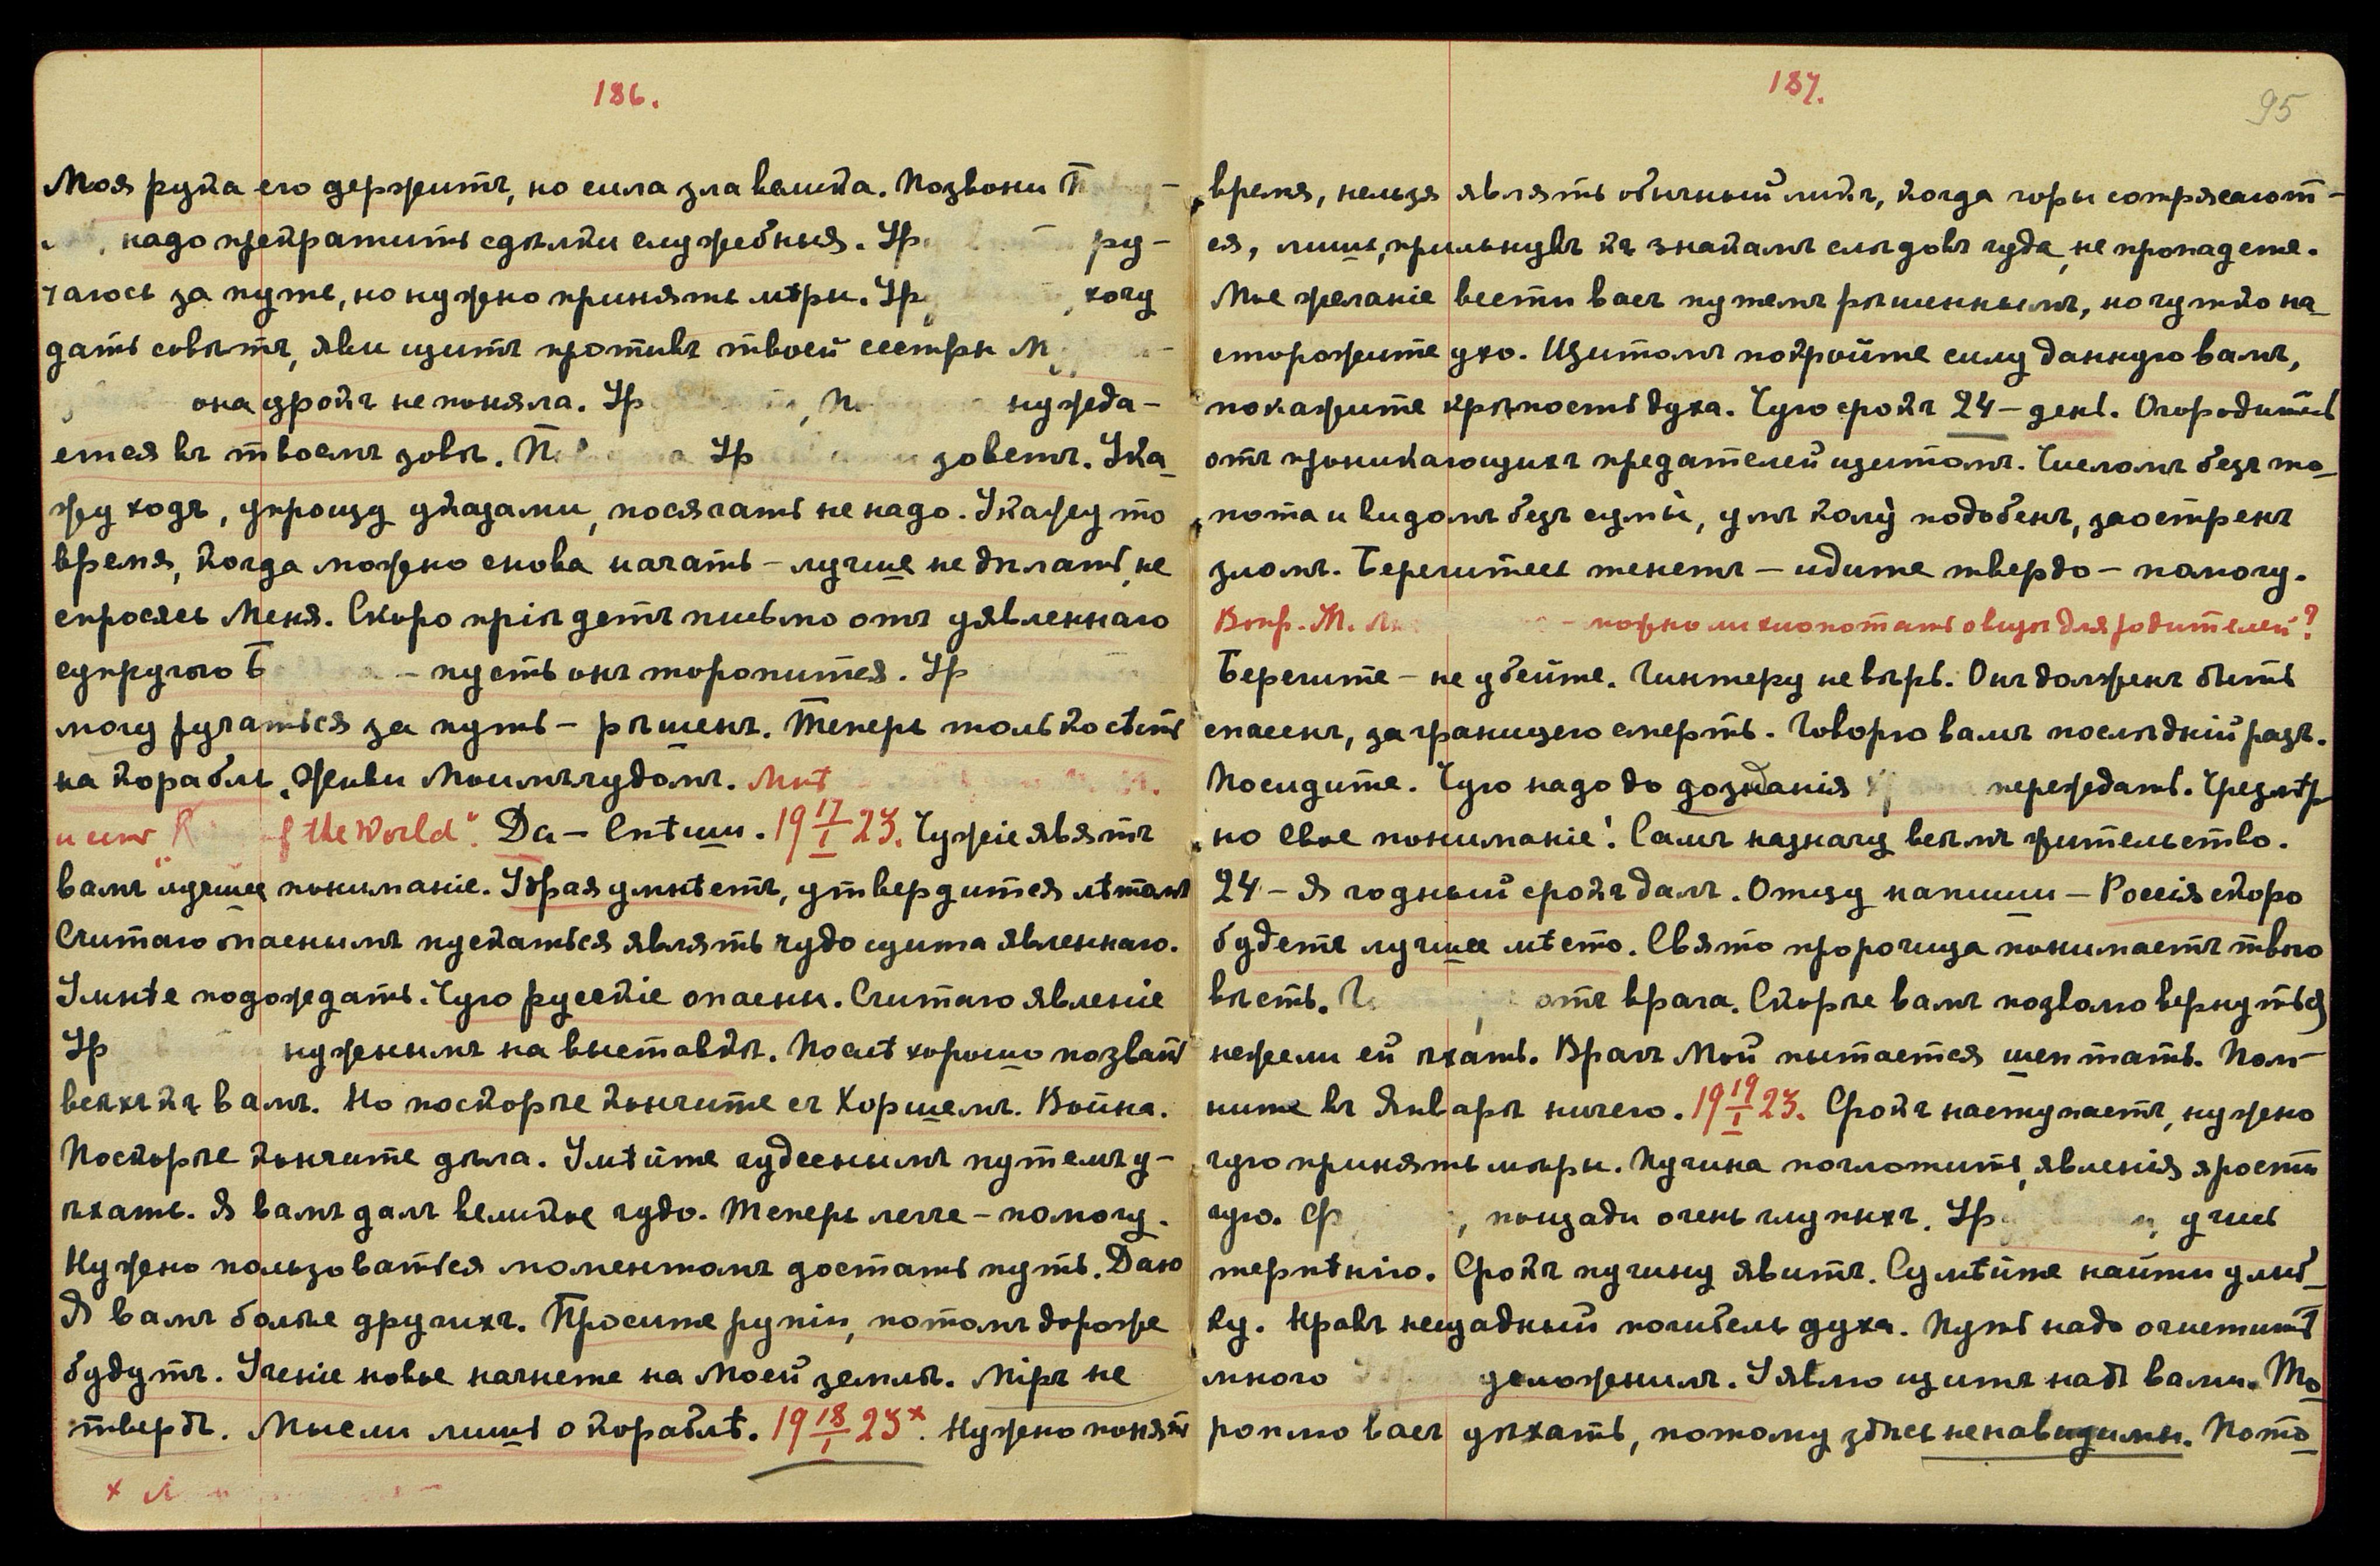 186.
Моя рука его держитъ, но сила зла велика. Позвони П
надо прекратить сдѣлки служебныя. Ур ру-
чаюсь за путь, но нужно принять мѣры. Ур хочу
дать совѣтъ, яви щитъ противъ твоей сестры М
она срокъ не поняла. Ур нужда-
ется въ твоемъ зовѣ. П Ур зоветъ. Ука-
жу ходъ, упрощу указами, посягать не надо. Укажу то
время, когда можно снова начать – лучше не дѣлать, не
спросясь Меня. Скоро пріѣдетъ письмо отъ уявленнаго
супругою Б – пусть онъ торопится. Ур
могу ручаться за путь – рѣшенъ. Теперь только сѣсть
на корабль. Живи Моимъ чудомъ.
f the World". Да – Спѣши. 19 17/I 23. Чужіе явятъ
вамъ лучшее пониманіе. Удрая умнѣетъ, утвердится лѣтомъ
Считаю опаснымъ пускаться являть чудо щита явленнаго.
Умнѣе подождать. Чую русскіе опасны. Считаю явленіе
Ур нужнымъ на выставкѣ. Послѣ хорошо позвать
всѣхъ къ вамъ. Но поскорѣе кончите съ Хоршемъ. Война.
Поскорѣе кончите дѣла. Умѣйте чудеснымъ путемъ у-
ѣхать. Я вамъ далъ великое чудо. Теперь легче – помогу.
Нужно пользоваться моментомъ достать путь. Даю
Я вамъ болѣе другихъ. Просите рупіи, потомъ дороже
будутъ. Ученіе новое начнете на Моей землѣ. Міръ не
твердъ. Мысли лишь о кораблѣ. 19 18/I 23 x. Нужно понять
x
187.
95
время, нельзя являть обычный ликъ, когда горы сотрясают-
ся, лишь, прильнувъ къ знакамъ слѣдовъ чуда, не пропадете.
Мое желаніе вести васъ путемъ рѣшеннымъ, но чутко на-
сторожите ухо. Щитомъ покройте силу данную вамъ,
покажите крѣпость духа. Чую срокъ 24 – день. Огородитесь
отъ проникающихъ предателей щитомъ. Числомъ безъ то-
пота и видомъ безъ сумы, умъ колу подобенъ, заостренъ
зломъ. Берегитесь тенетъ – идите твердо – помогу.
Вопр. М. – можно ли хлопотать о визѣ для родителей?
Берегите – не убейте. Гинтеру не вѣрь. Онъ долженъ быть
спасенъ, за границею смерть. Говорю вамъ послѣдній разъ.
Посидите. Чую надо до дознанія переждать. Чрезмѣр-
но Свое пониманіе! Самъ назначу всѣмъ жительство.
24 – Я годный срокъ далъ. Отцу напиши – Россія скоро
будетъ лучшее мѣсто. Свято пророчица понимаетъ твою
вѣсть. отъ врага. Скорѣе вамъ позволю вернуться
нежели ей ѣхать. Врагъ Мой пытается шептать. Пом-
ните въ Январѣ ничего. 19 19/I 23. Срокъ наступаетъ, нужно
чую принять мѣры. Пучина поглотитъ, явленія ярости
чую. Ф , пощади очень глупыхъ. Ур учись
терпѣнію. Срокъ пучину явитъ. Сумѣйте найти улыб-
ку. Нравъ нещадный погибель духа. Путь надо очистить
много уложенимъ. Уявлю щитъ надъ вами. То-
роплю васъ уѣхать, потому здѣсь ненавидимы. Пото-